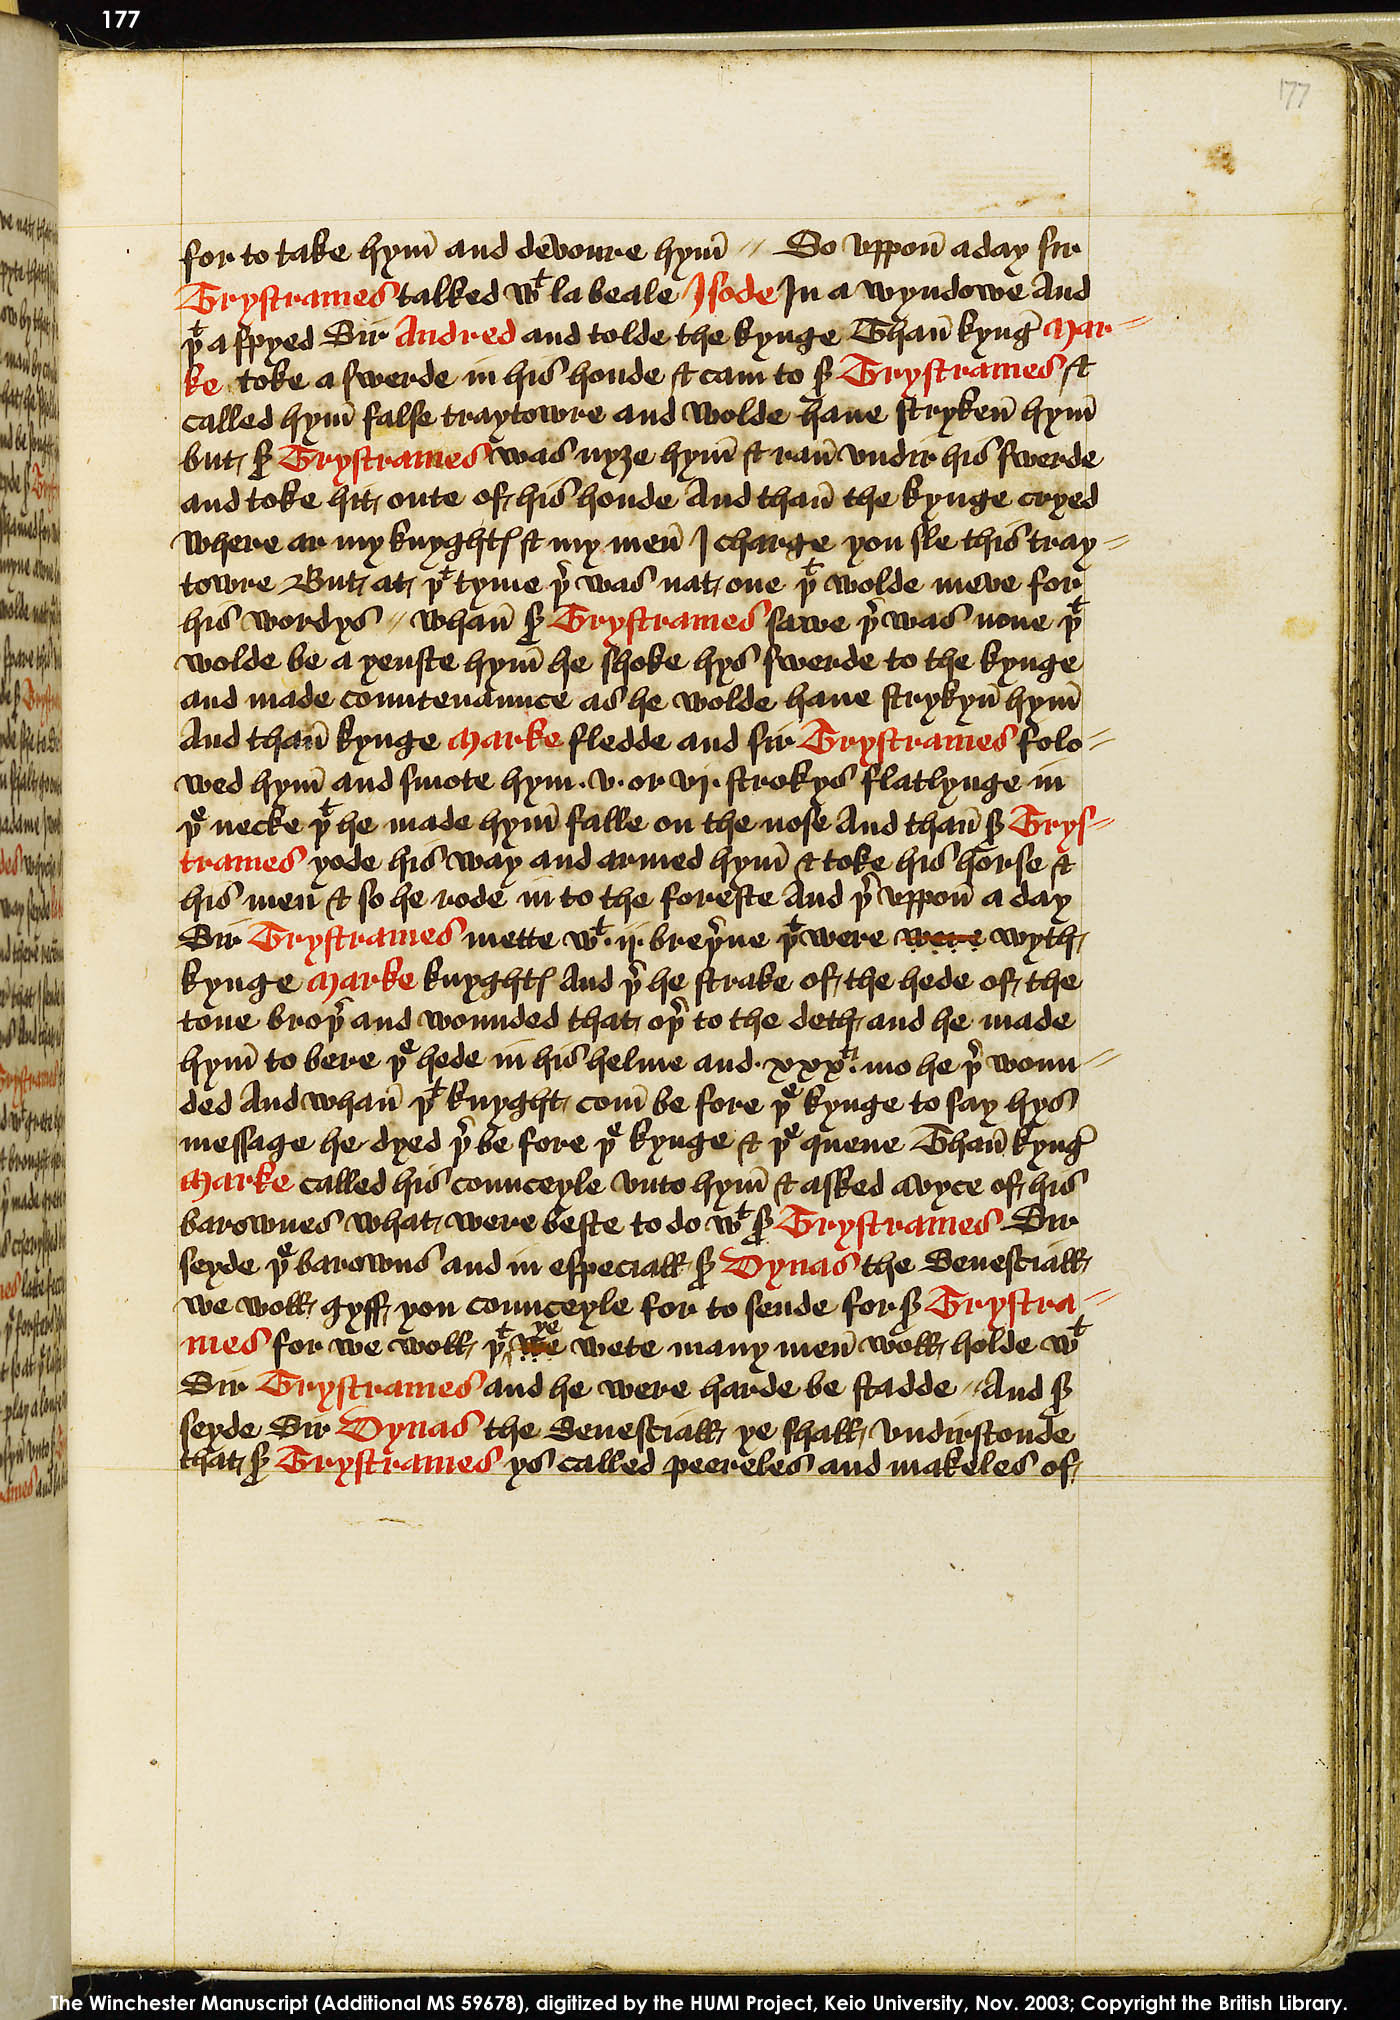 177
177
for to take hym̄ and devoure hym̄ // So vppon̄ a day sir
Trystrames talked wᵗ la beale Isode In a wyndowe And
þᵗ a spyed Sir Andred and tolde the kynge Than̄ kynḡ Mar=
ke toke a swerde in his honde & cam to sͬ Trystrames &
called hym̄ false traytowre and wolde haue stryken̄ hym̄
but sͬ Trystrames was nyȝe hym̄ & ran̄ vndir his swerde
and toke hit oute of his honde And than̄ the kynge cryed
where ar my knyghtꝭ & my men̄ I charge you sle this tray=
towre But at þᵗ tyme þͬ was nat one þᵗ wolde meve for
his wordys // whan̄ sͬ Trystrames sawe þͬ was none þᵗ
wolde be a yenste hym̄ he shoke hys swerde to the kynge
and made countenaunce as he wolde haue strykyn̄ hym̄
And than̄ kynge Marke fledde and sir Trystrames folo=
wed hym̄ and smote hym .v. or vj. strokys flatlynge in
þᵉ necke þᵗ he made hym̄ falle on the nose And than̄ sͬ Trys=
trames yode his way and armed hym̄ & toke his horse &
his men̄ & so he rode in to the foreste And þͬ vppon̄ a day
Sir Trystrames mette wᵗ .ij. breþͬne þᵗ were were wyth
kynge Marke knyghtꝭ And þͬ he strake of the hede of the
tone broþͬ and wounded that oþͬ to the deth and he made
hym̄ to bere þᵉ hede in his helme and .xxxᵗⁱ. mo he þͬ woun=
ded And whan̄ þᵗ knyght com̄ be fore þᵉ kynge to say hys
message he dyed þͬ be fore þᵉ kynge & þᵉ quene Than̄ kynḡ
Marke called his counceyle vnto hym̄ & asked avyce of his
barownes what were beste to do wᵗ sͬ Trystrames Sir
seyde þᵉ barowns and in especiall sͬ Dynas the Senesciall
we woll gyff you counceyle for to sende for sͬ Trystra=
mes for we woll þᵗ we ye wete many men̄ woll holde wᵗ
Sir Trystrames and he were harde be stadde // And sͬ
seyde Sir Dynas the Senesciall ye shall vndirstonde
that sͬ Trystrames ys called peereles and makeles of
The Winchester Manuscript (Additional MS 59678), digitized by the HUMI Project, Keio University, Nov. 2003; Copyright the British Library.